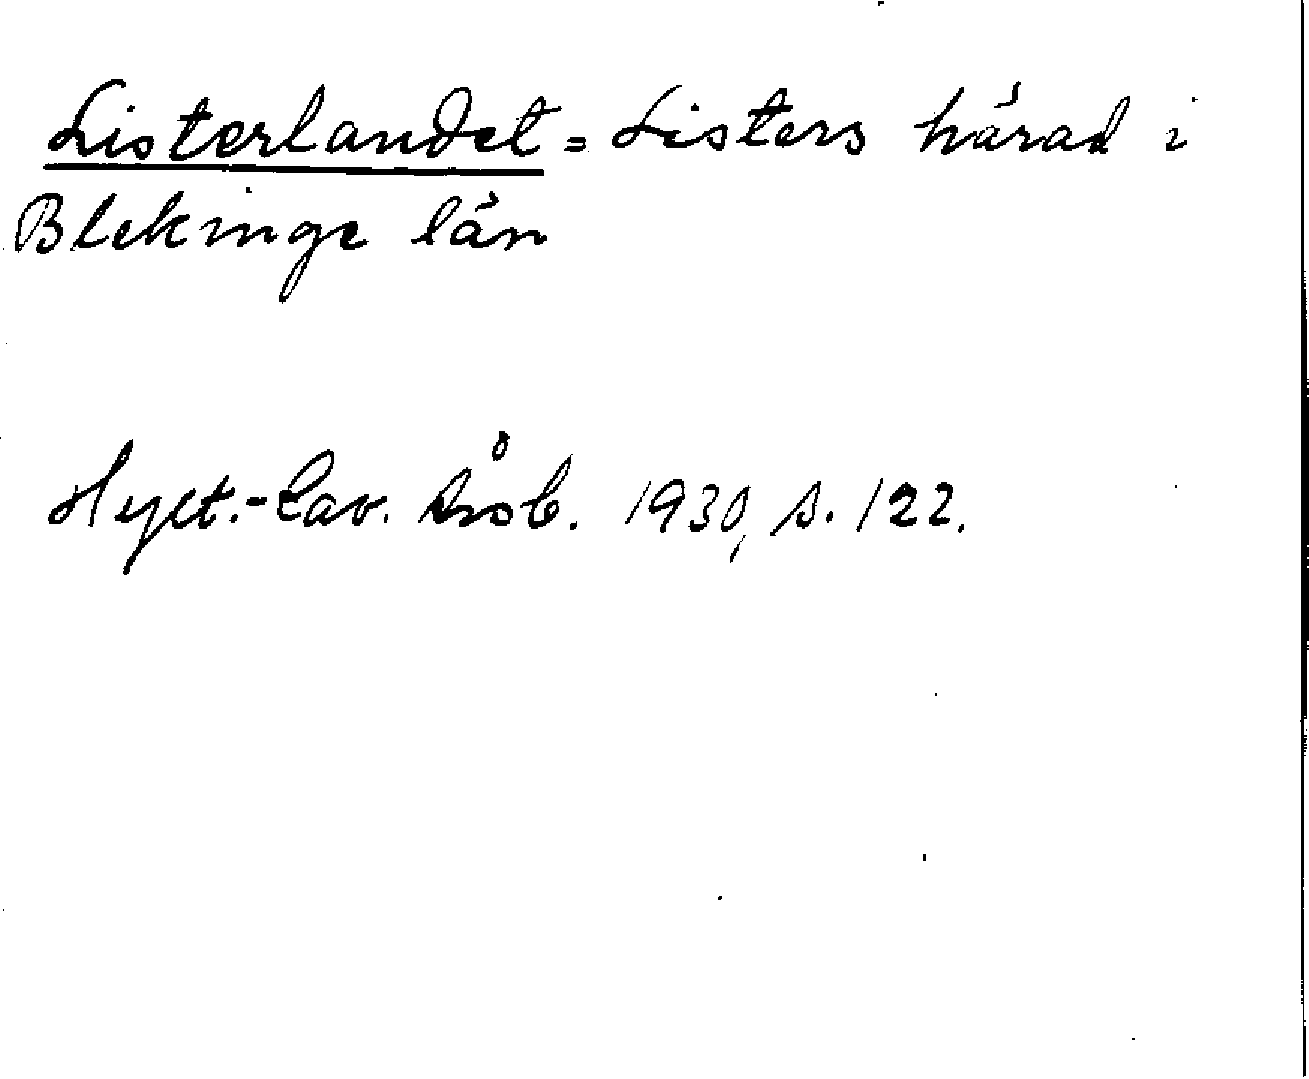 Listerlandet = Listers härad i
Blekinge län
Hylt.-Cav. Årsb. 1930, s. 122.